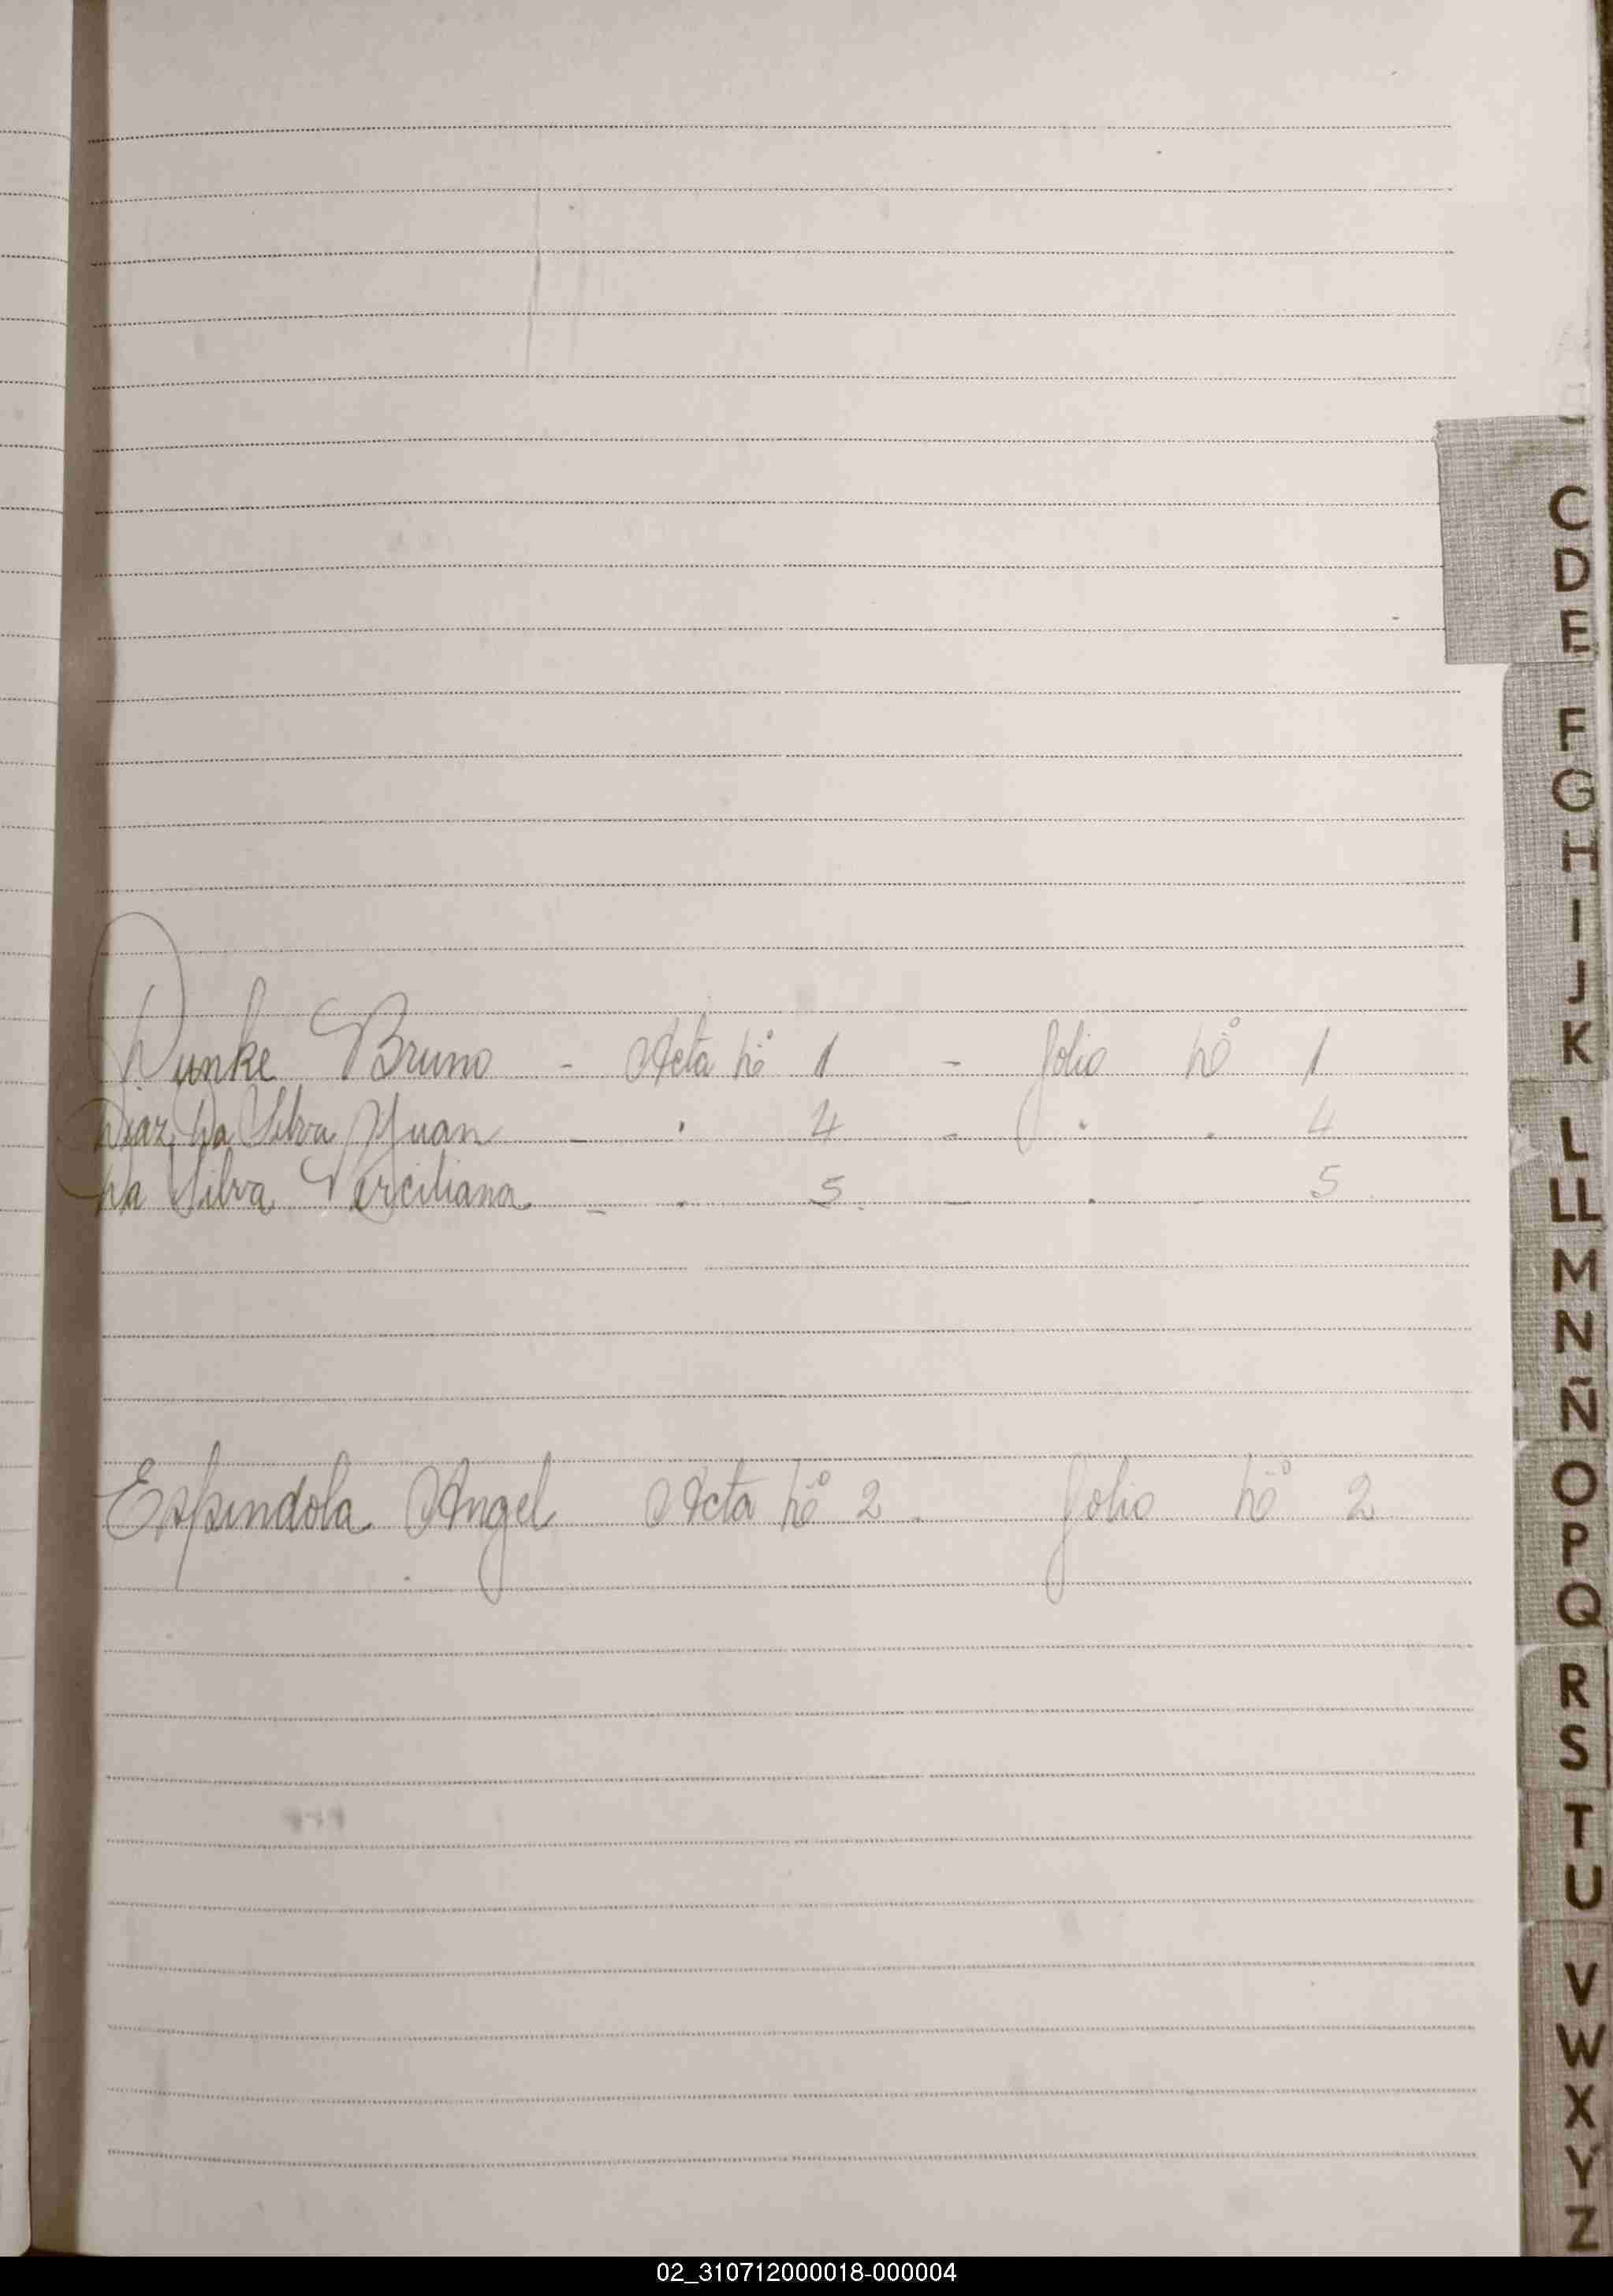 C
D
E
F
G
H
I
J
K
Dunke Bruno - Acta Nº 1 - folio Nº 1
Diaz Da Silva Juan - . 4 - . . 4
Da Silva Terciliana - . 5. - . - 5
L
LL
M
N
Ñ
Espindola Angel Acta Nº 2 . folio Nº 2
O
P
Q
R
S
T
U
V
W
X
Y
Z
02_310712000018-000004